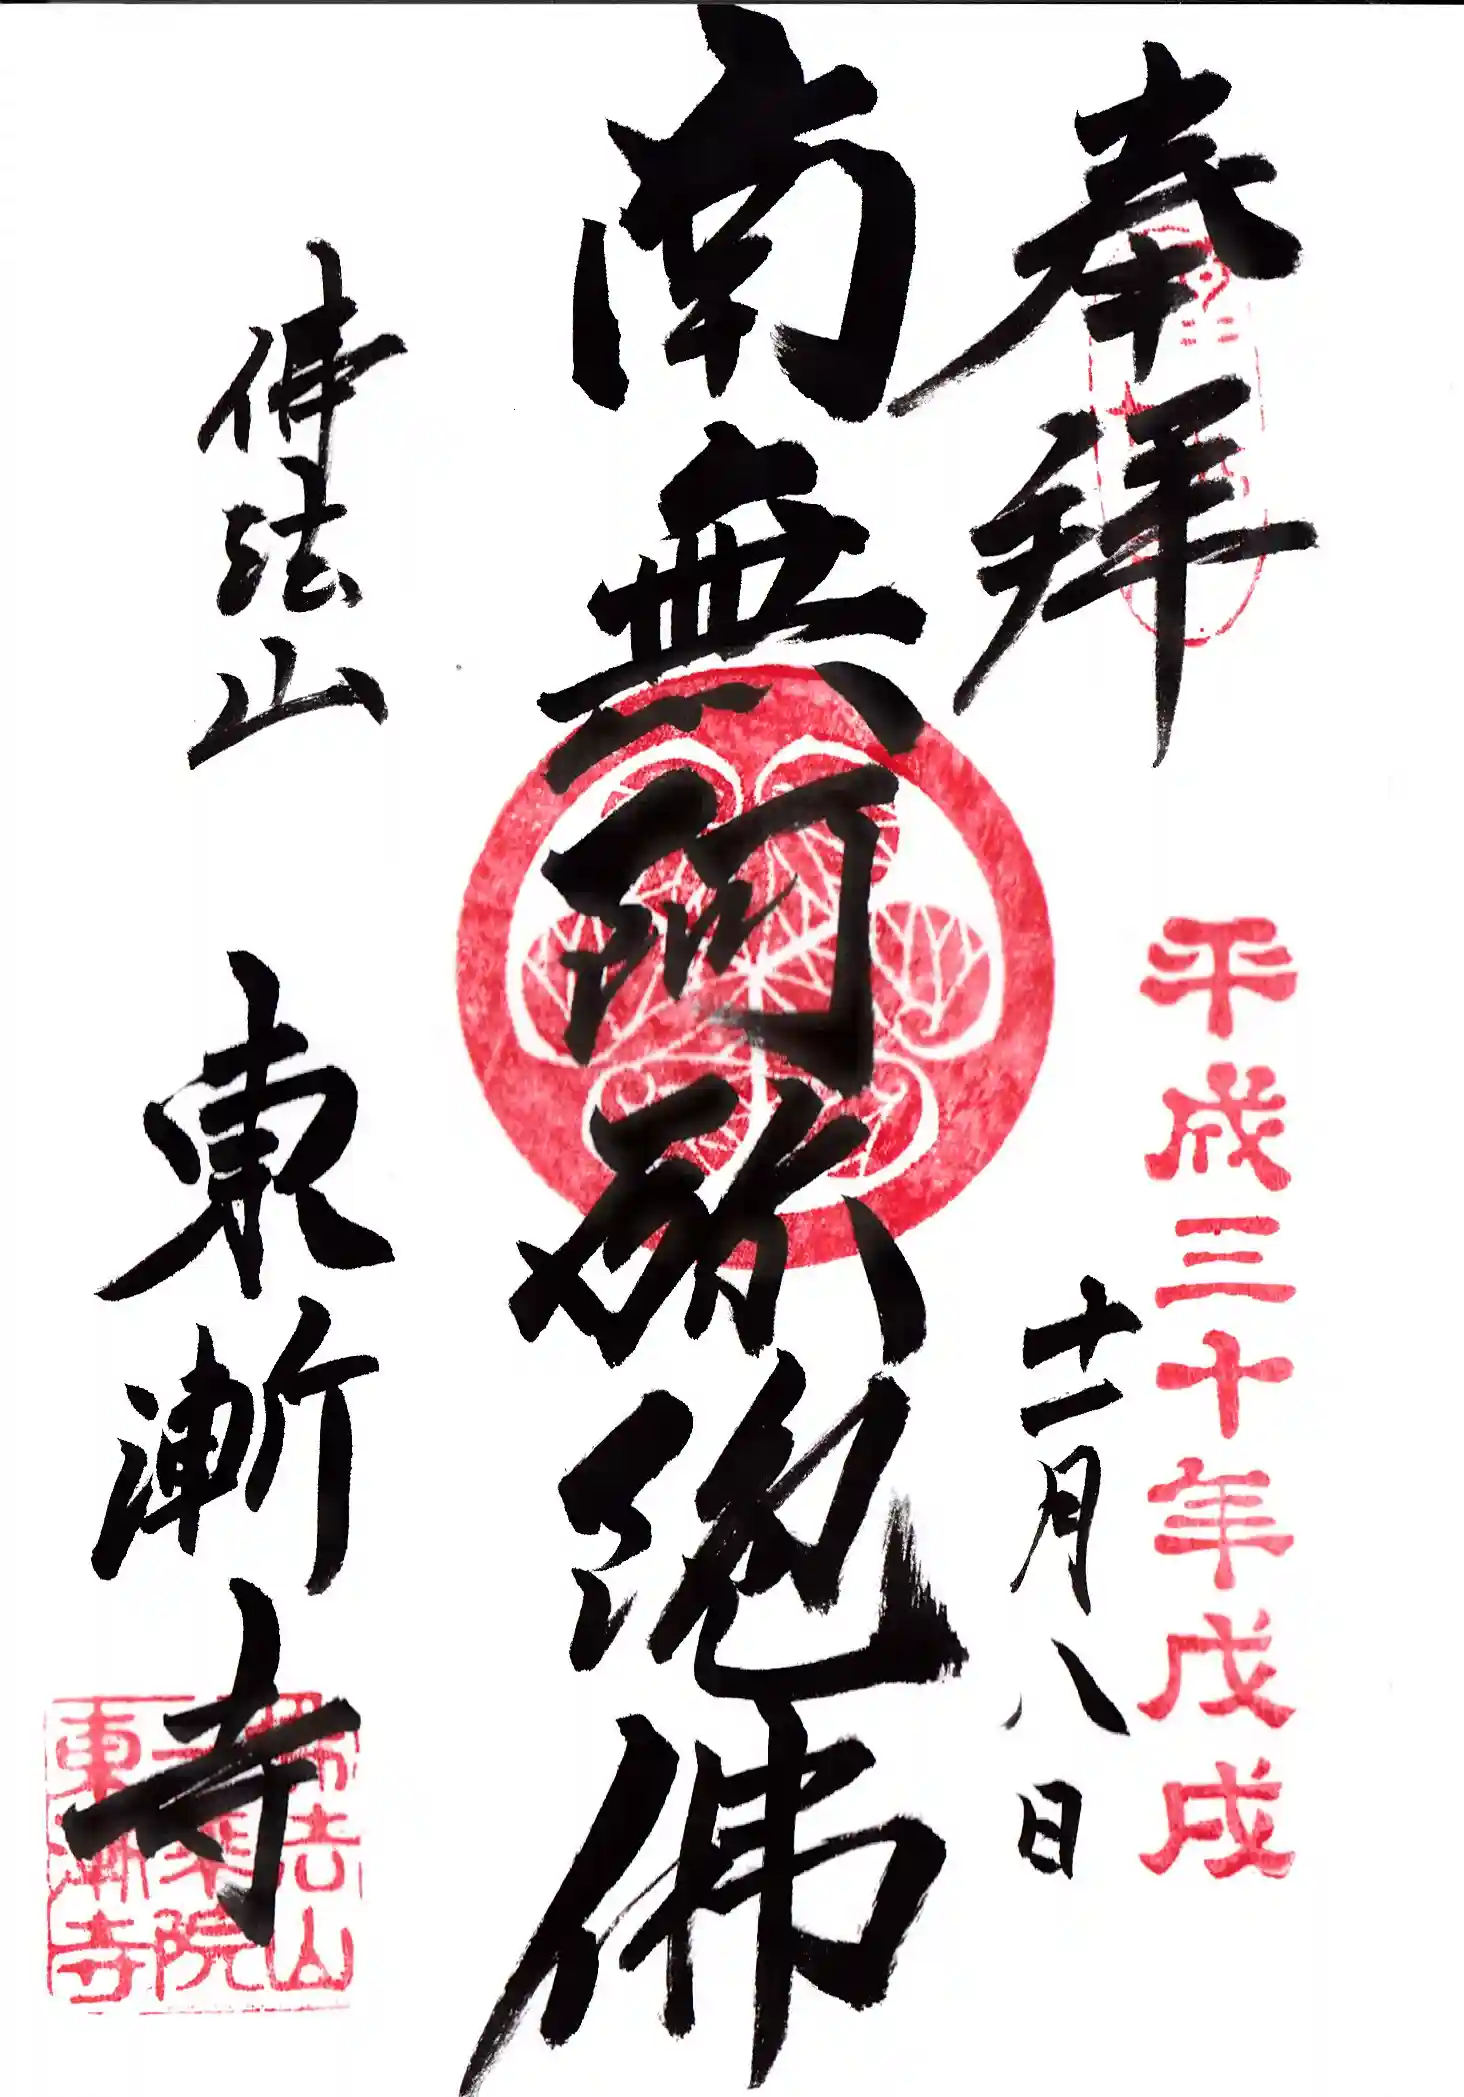 奉拝
平成三十年戊戌
十一月八日
南無阿弥陀佛
佛法山 東漸寺
佛法山
一乗院
東漸寺